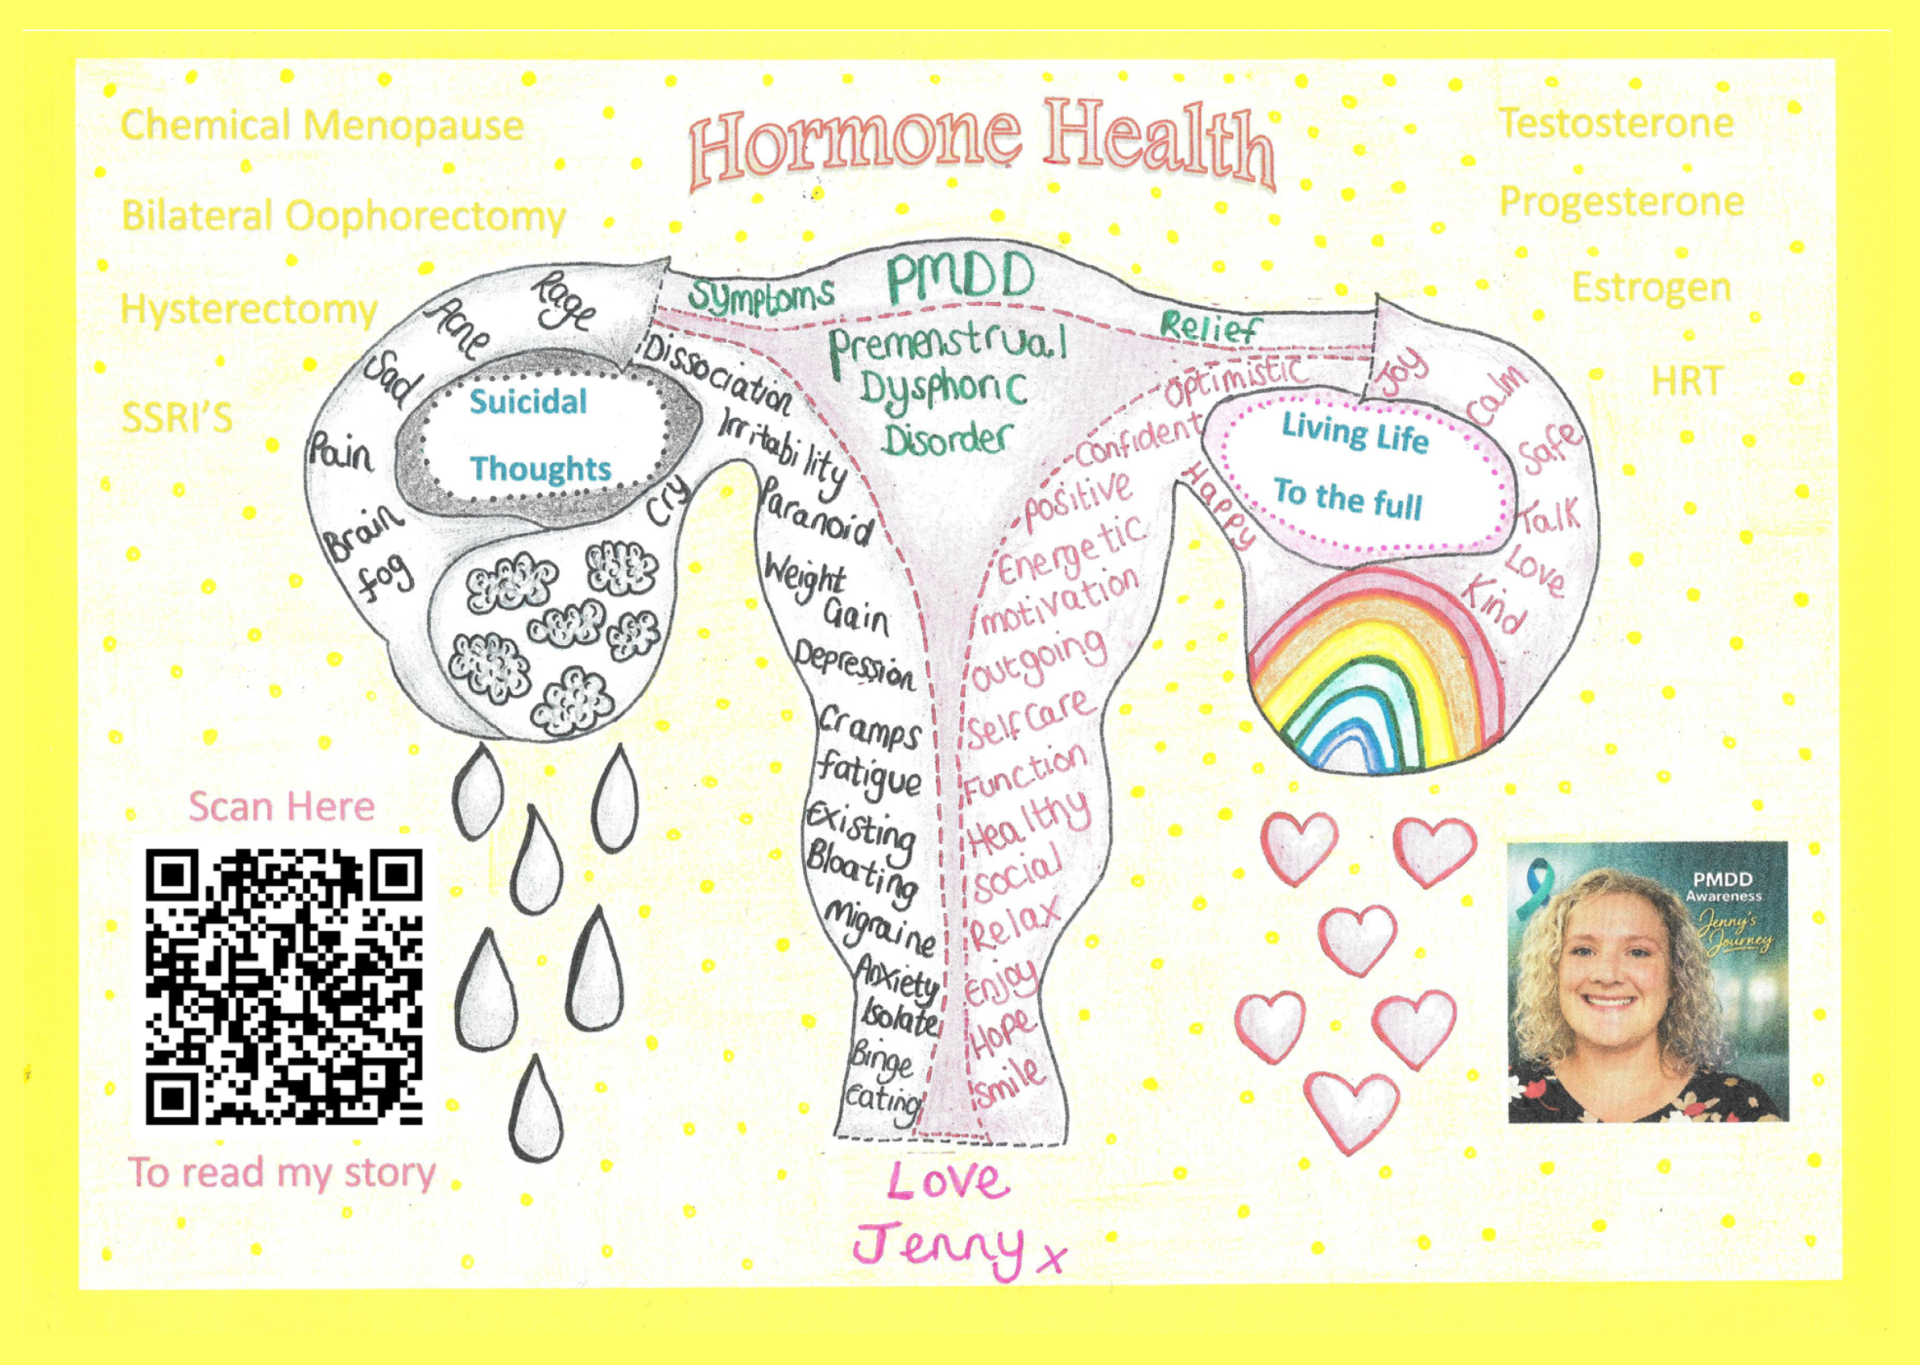 Hormone Health
Chemical Menopause
Bilateral Oophorectomy
Hysterectomy
SSRI'S
Testosterone
Progesterone
Estrogen
HRT
PMDD
Symptoms
Relief
Premenstrual
Dysphoric
Disorder
Rage
Acne
Sad
Pain
Brain
fog
Suicidal
Thoughts
Cry
Dissociation
Irritability
Paranoid
Weight
Gain
Depression
Cramps
fatigue
Existing
Bloating
Migraine
Anxiety
Isolate
Binge
Eating
Optimistic
Confident
Positive
Energetic
motivation
outgoing
Self Care
Function
Healthy
Social
Relax
Enjoy
Hope
Smile
Joy
Calm
Safe
Talk
Love
Kind
Happy
Living Life
To the full
Scan Here
To read my story
PMDD
Awareness
Jenny's
Journey
Love
Jenny x